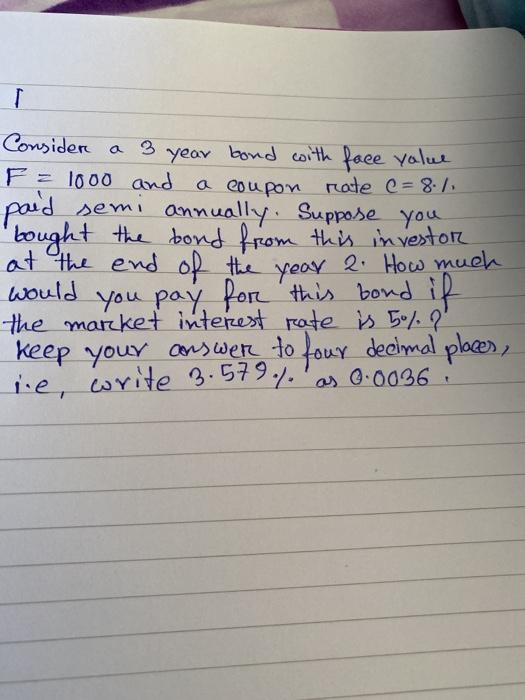 I
Consider a 3 year bond with face value
F = 1000 and a coupon rate C = 8%
paid semi annually. Suppose you
bought the bond from this investor
at the end of the year 2. How much
would you pay for this bond if
the market interest rate is 5%?
keep your answer to four decimal places,
i.e, write 3.579% as 0.0036.